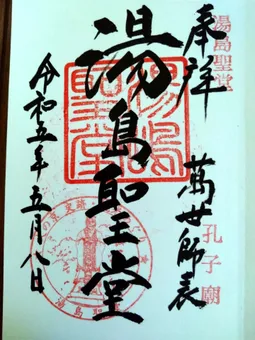 奉拝
湯島聖堂
萬世師表
孔子廟
湯島聖堂
湯島聖堂
令和五年五月八日
湯島聖堂